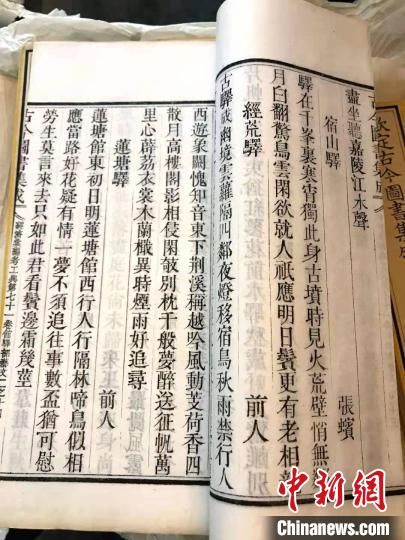 欽定古今圖書集成
盡坐聽嘉陵江水聲
宿山驛 張蠙
驛在千峯裏寒宵獨此身古墳時見火荒壁悄無
月白翻驚鳥雲閑欲就人祇應明日鬢更有老相
經荒驛 前人
古驛成幽境雲蘿隔四鄰夜燈移宿鳥秋雨禁行人
西遊象闕愧知音東下荆溪稱越吟風動芰荷香四
散月高樓閣影相侵閑欹別枕千般夢醉送征帆萬
里心薜荔衣裳木蘭檝異時煙雨好追尋
蓮塘驛 前人
蓮塘館東初日明蓮塘館西行人行隔林啼鳥似相
應當路好花疑有情一夢不須追往事數盃猶可慰
勞生莫言來去只如此君看鬢邊霜幾莖
古今圖書集成 經濟彙編考工典第七十一卷館驛部藝文二之
中新网
Chinanews.com